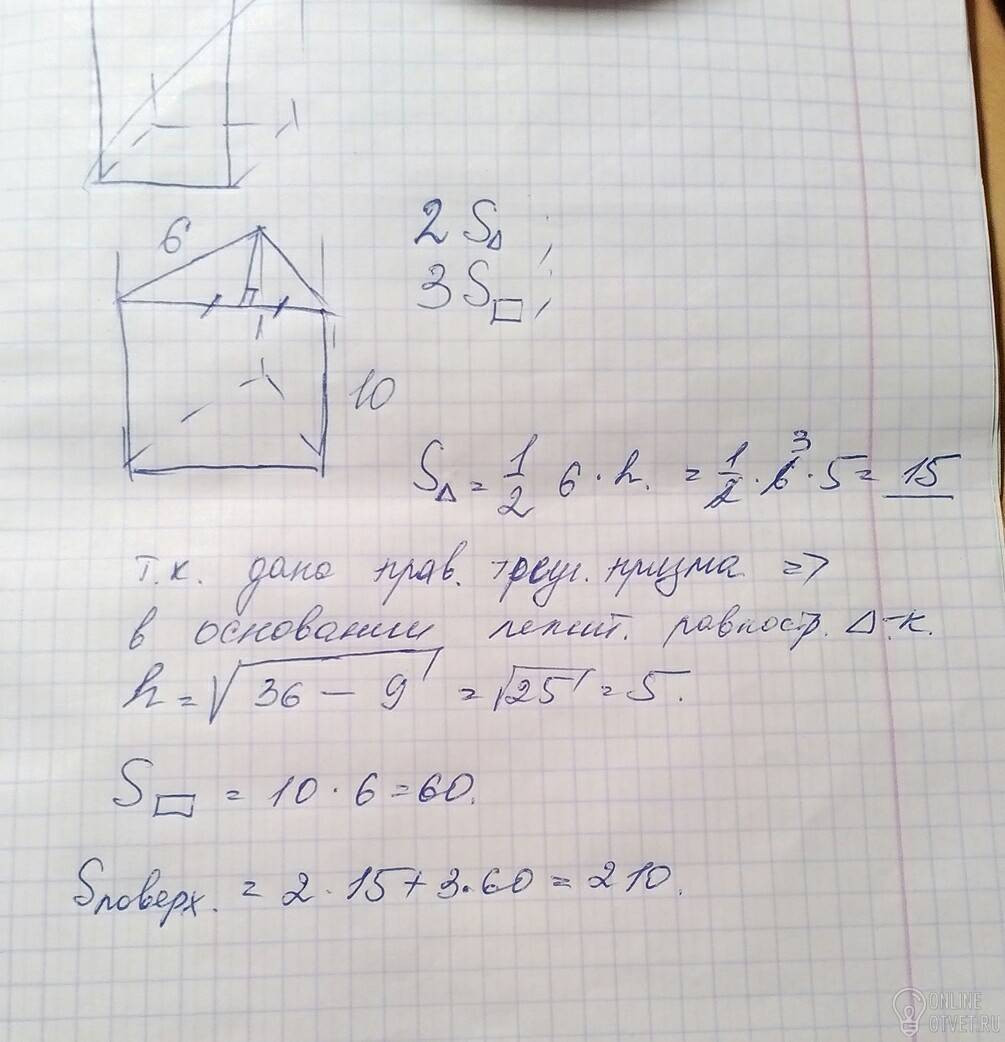 6
2 S△ ;
3 S▭ ;
10
S△ = 1/2 6 · h. = 1/2 · 6 3 · 5 = 15
т.к. дана прав. треуг. призма =>
в основании лежит. равност. △-к.
h = √36 - 9 = √25 = 5.
S▭ = 10 · 6 = 60.
Sповерх. = 2 · 15 + 3 · 60 = 210.
ONLINE
OTVET.RU